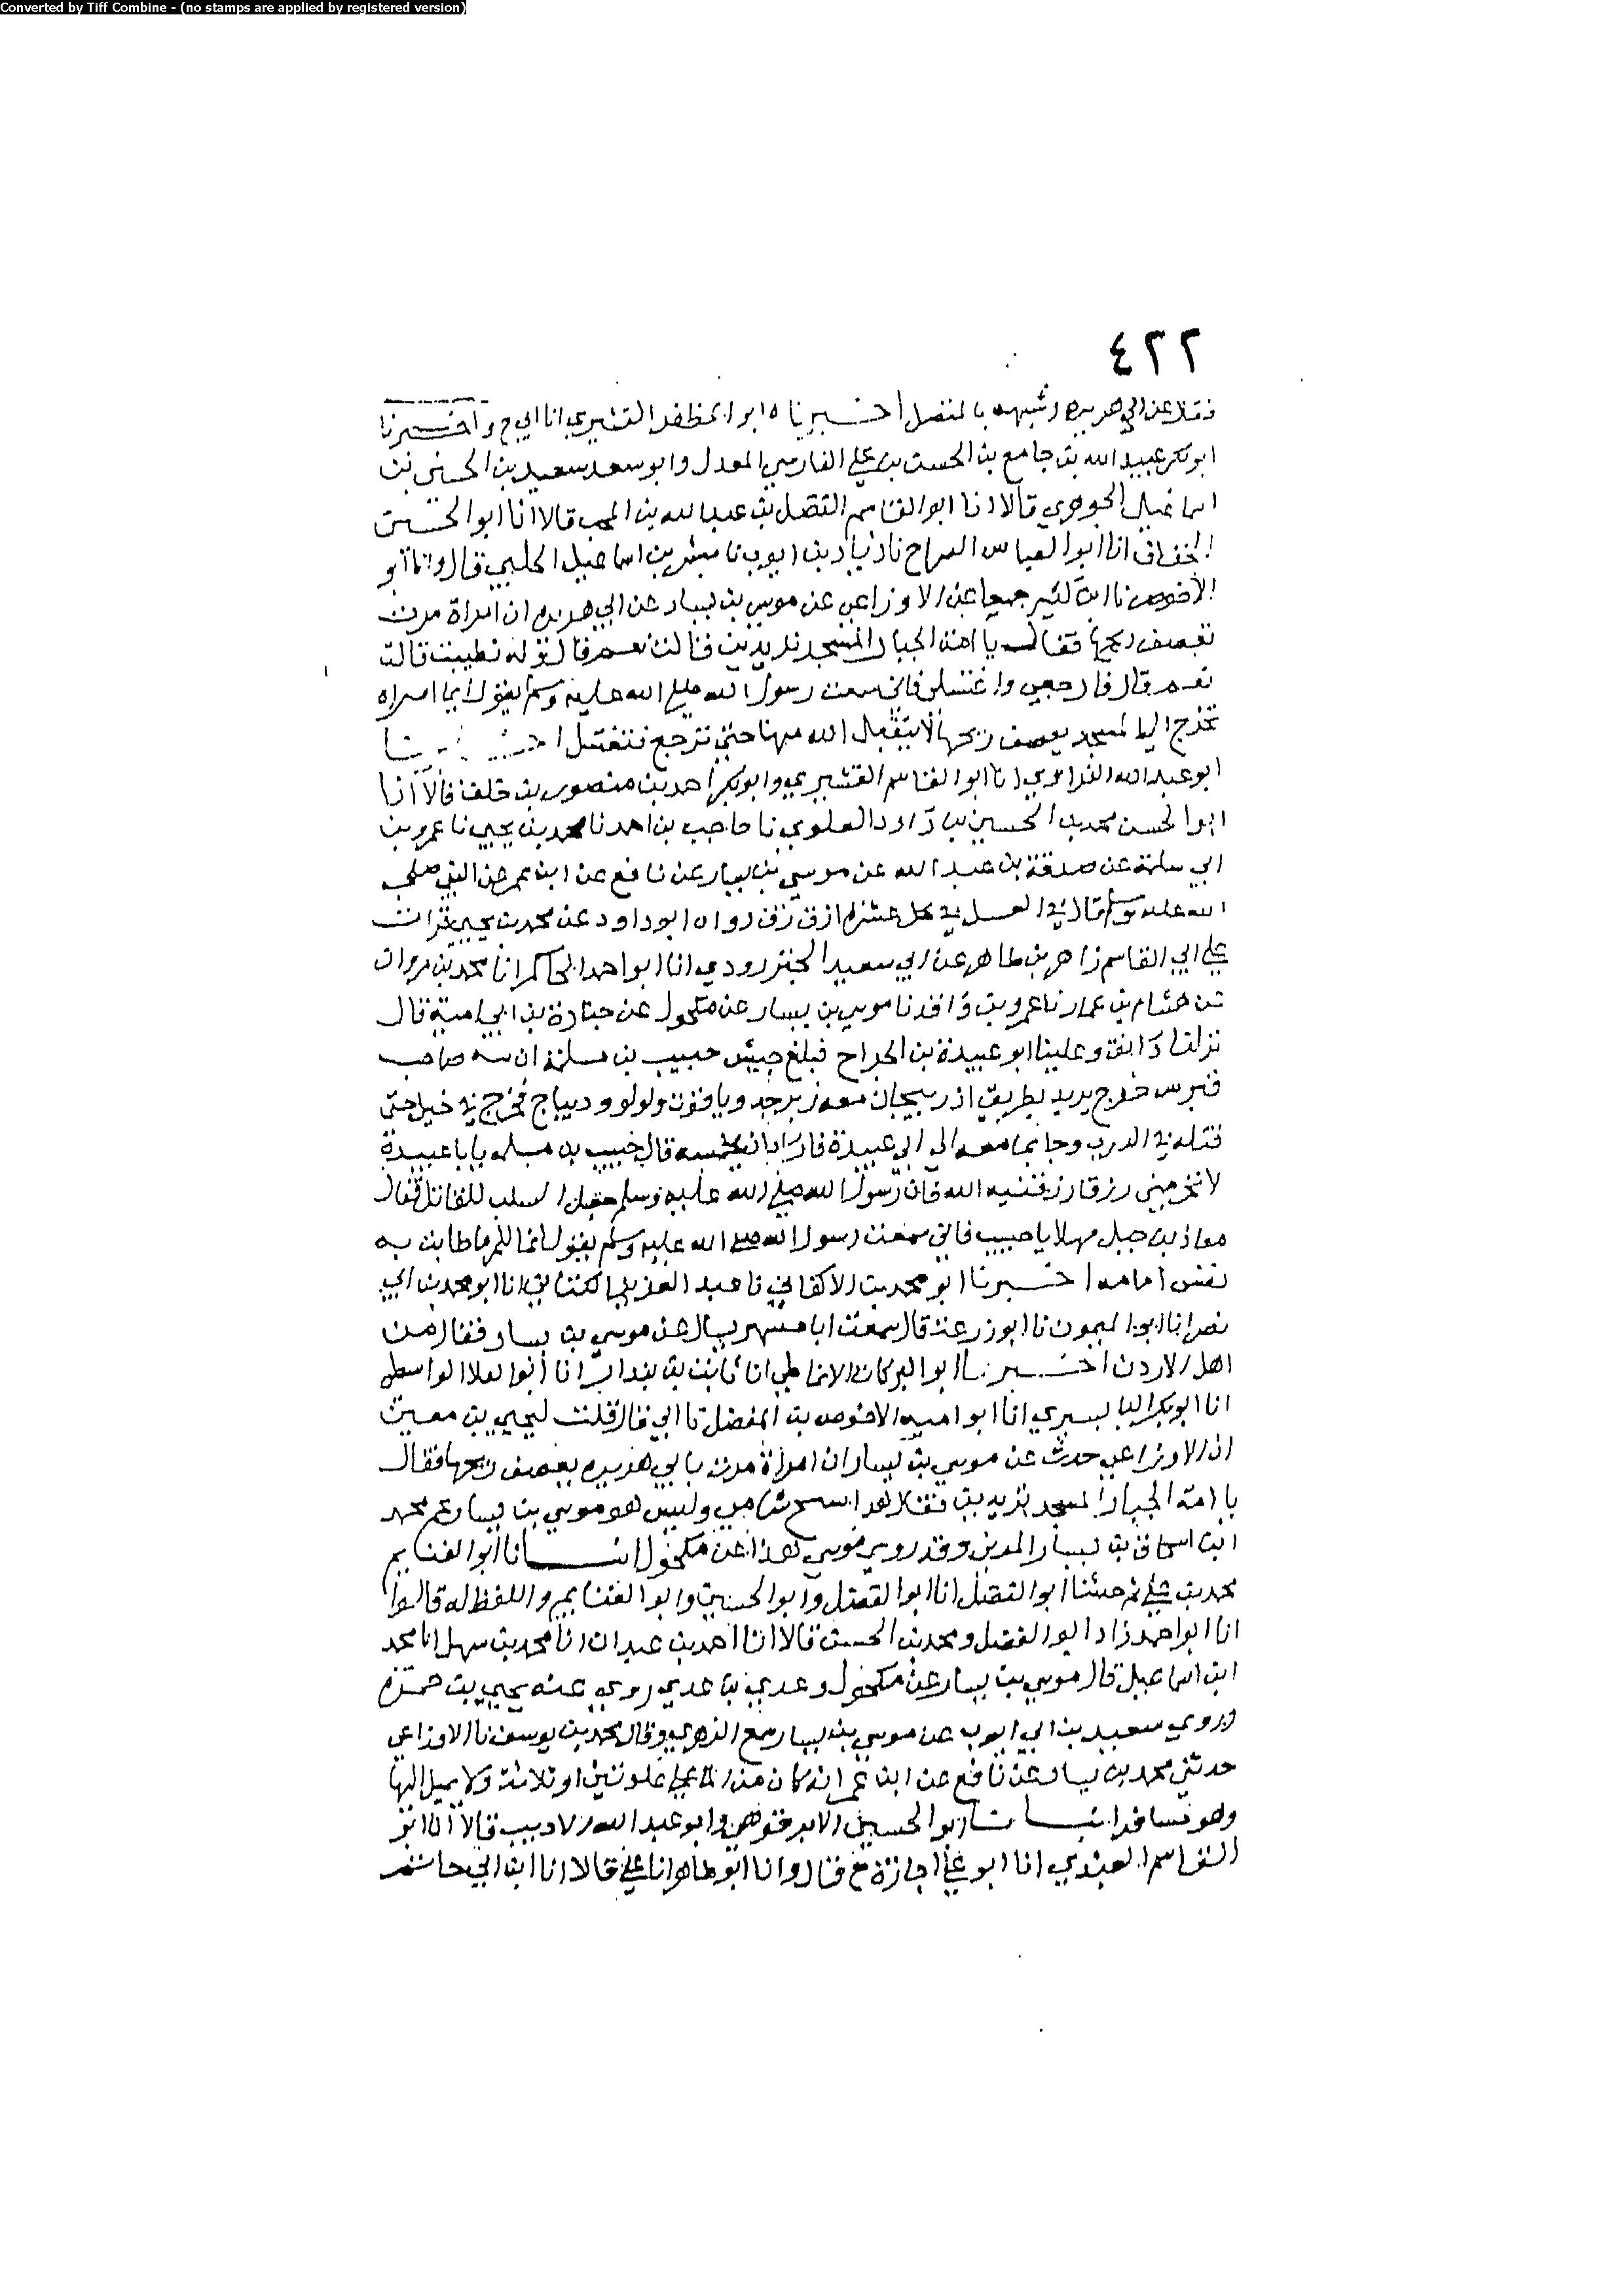 Converted by Tiff Combine - (no stamps are applied by registered version)
٤٢٢
فقلا عن ابي هريره وشبهه بالمتصل اخبرناه ابو المظفر القشيري انا ابي ح واخبرنا
ابو بكر عبيد الله بن جامع بن الحسن بن علي الفارسي المعدل وابو سعد سعيد بن الحسين بن
اسماعيل الجوهري قالا انا ابو القاسم الفضل بن عبد الله بن المحب قالا انا ابو الحسين
الخفاف انا ابو العباس السراج نا زياد بن ايوب نا مبشر بن اسماعيل الحلبي قال ونا ابو
الاحوص نا ابن كثير جميعا عن الاوزاعي عن موسى بن يسار عن ابي هريره ان امراة مرت
تعصف ريحها فقال يا امة الجبار المسجد تريدين قالت نعم قال وله تطيبت قالت
نعم قال فارجعي واغتسلي فاني سمعت رسول الله صلى الله عليه وسلم يقول ايما امراه
تخرج الى المسجد يعصف ريحها لا يتقبل الله منها حتى ترجع فتغتسل اخبرنا
ابو عبد الله الفراوي انا ابو القاسم القشيري وابو بكر احمد بن منصور بن خلف قالا انا
ابو الحسن محمد بن الحسين بن داود العلوي نا حاجب بن احمد نا محمد بن يحيى نا عمرو بن
ابي سلمة عن صدقة بن عبد الله عن موسى بن يسار عن نافع عن ابن عمر عن النبي صلى
الله عليه وسلم قال في العسل في كل عشره ازق زق رواه ابو داود عن محمد بن يحيى قرات
على ابي القاسم زاهر بن طاهر عن ابي سعيد الجنزرودي انا ابو احمد الحاكم انا محمد بن مروان
نا هشام بن عمار نا عمرو بن واقد نا موسى بن يسار عن مكحول عن جنادة بن ابي امية قال
نزلنا دابق وعلينا ابو عبيدة بن الجراح فبلغ حبيب بن مسلمة ان صاحب
قبرس خرج يريد بطريق اذربيجان معه زبرجد وياقوت ولولو وديباج فخرج في خيل حتى
قتله في الدرب وجا بما معه الى ابي عبيدة فاراد ان يخمسه قال حبيب بن مسلمه يابا عبيدة
لا تحرمني رزقا رزقنيه الله فان رسول الله صلى الله عليه وسلم جعل السلب للقاتل فقال
معاذ بن جبل مهلا يا حبيب فاني سمعت رسول الله صلى الله عليه وسلم يقول انما للمر ما طابت به
نفس امامه اخبرنا ابو محمد بن الاكفاني نا عبد العزيز الكتاني انا ابو محمد بن ابي
نصر انا ابو الميمون نا ابو زرعة قال سمعت ابا مسهر يسال عن موسى بن يسار فقال من
اهل الاردن اخبرنا ابو البركات الانماطي انا ثابت بن بندار انا ابو العلا الواسطي
انا ابو بكر البابسيري انا ابو اميه الاحوص بن المفضل نا ابي قال قلت ليحيى بن معين
ان الاوزاعي حدث عن موسى بن يسار ان امراة مرت بابي هريره يعصف ريحها فقال
يا امة الجبار المسجد تريدين فقال هذا شيخ شامي وليس هو موسى بن يسار عم محمد
ابن اسحاق بن يسار المديني وقد روى موسى هذا عن مكحول انبانا ابو الغنايم
محمد بن علي ثم حدثنا ابو الفضل انا ابو الفضل وابو الحسين وابو الغنايم واللفظ له قالوا
انا ابو احمد زاد ابو الفضل ومحمد بن الحسن قالا انا احمد بن عبدان انا محمد بن سهل انا محمد
ابن اسماعيل قال موسى بن يسار عن مكحول وعدي بن عدي روى عنه يحيى بن حمزه
وروى سعيد بن ابي ايوب عن موسى بن يسار سمع الزهري وقال محمد بن يوسف نا الاوزاعي
حدثني محمد بن يسار عن نافع عن ابن عمر انه كان من الما على غلوتين او ثلاثة ولا يميل اليها
وهو مسافر انبانا ابو الحسين الابرقوهي وابو عبد الله الاديب قالا انا ابو
القاسم العبدي انا ابو علي اجازة ح قال وانا ابو طاهر انا علي قالا انا ابن ابي حاتم